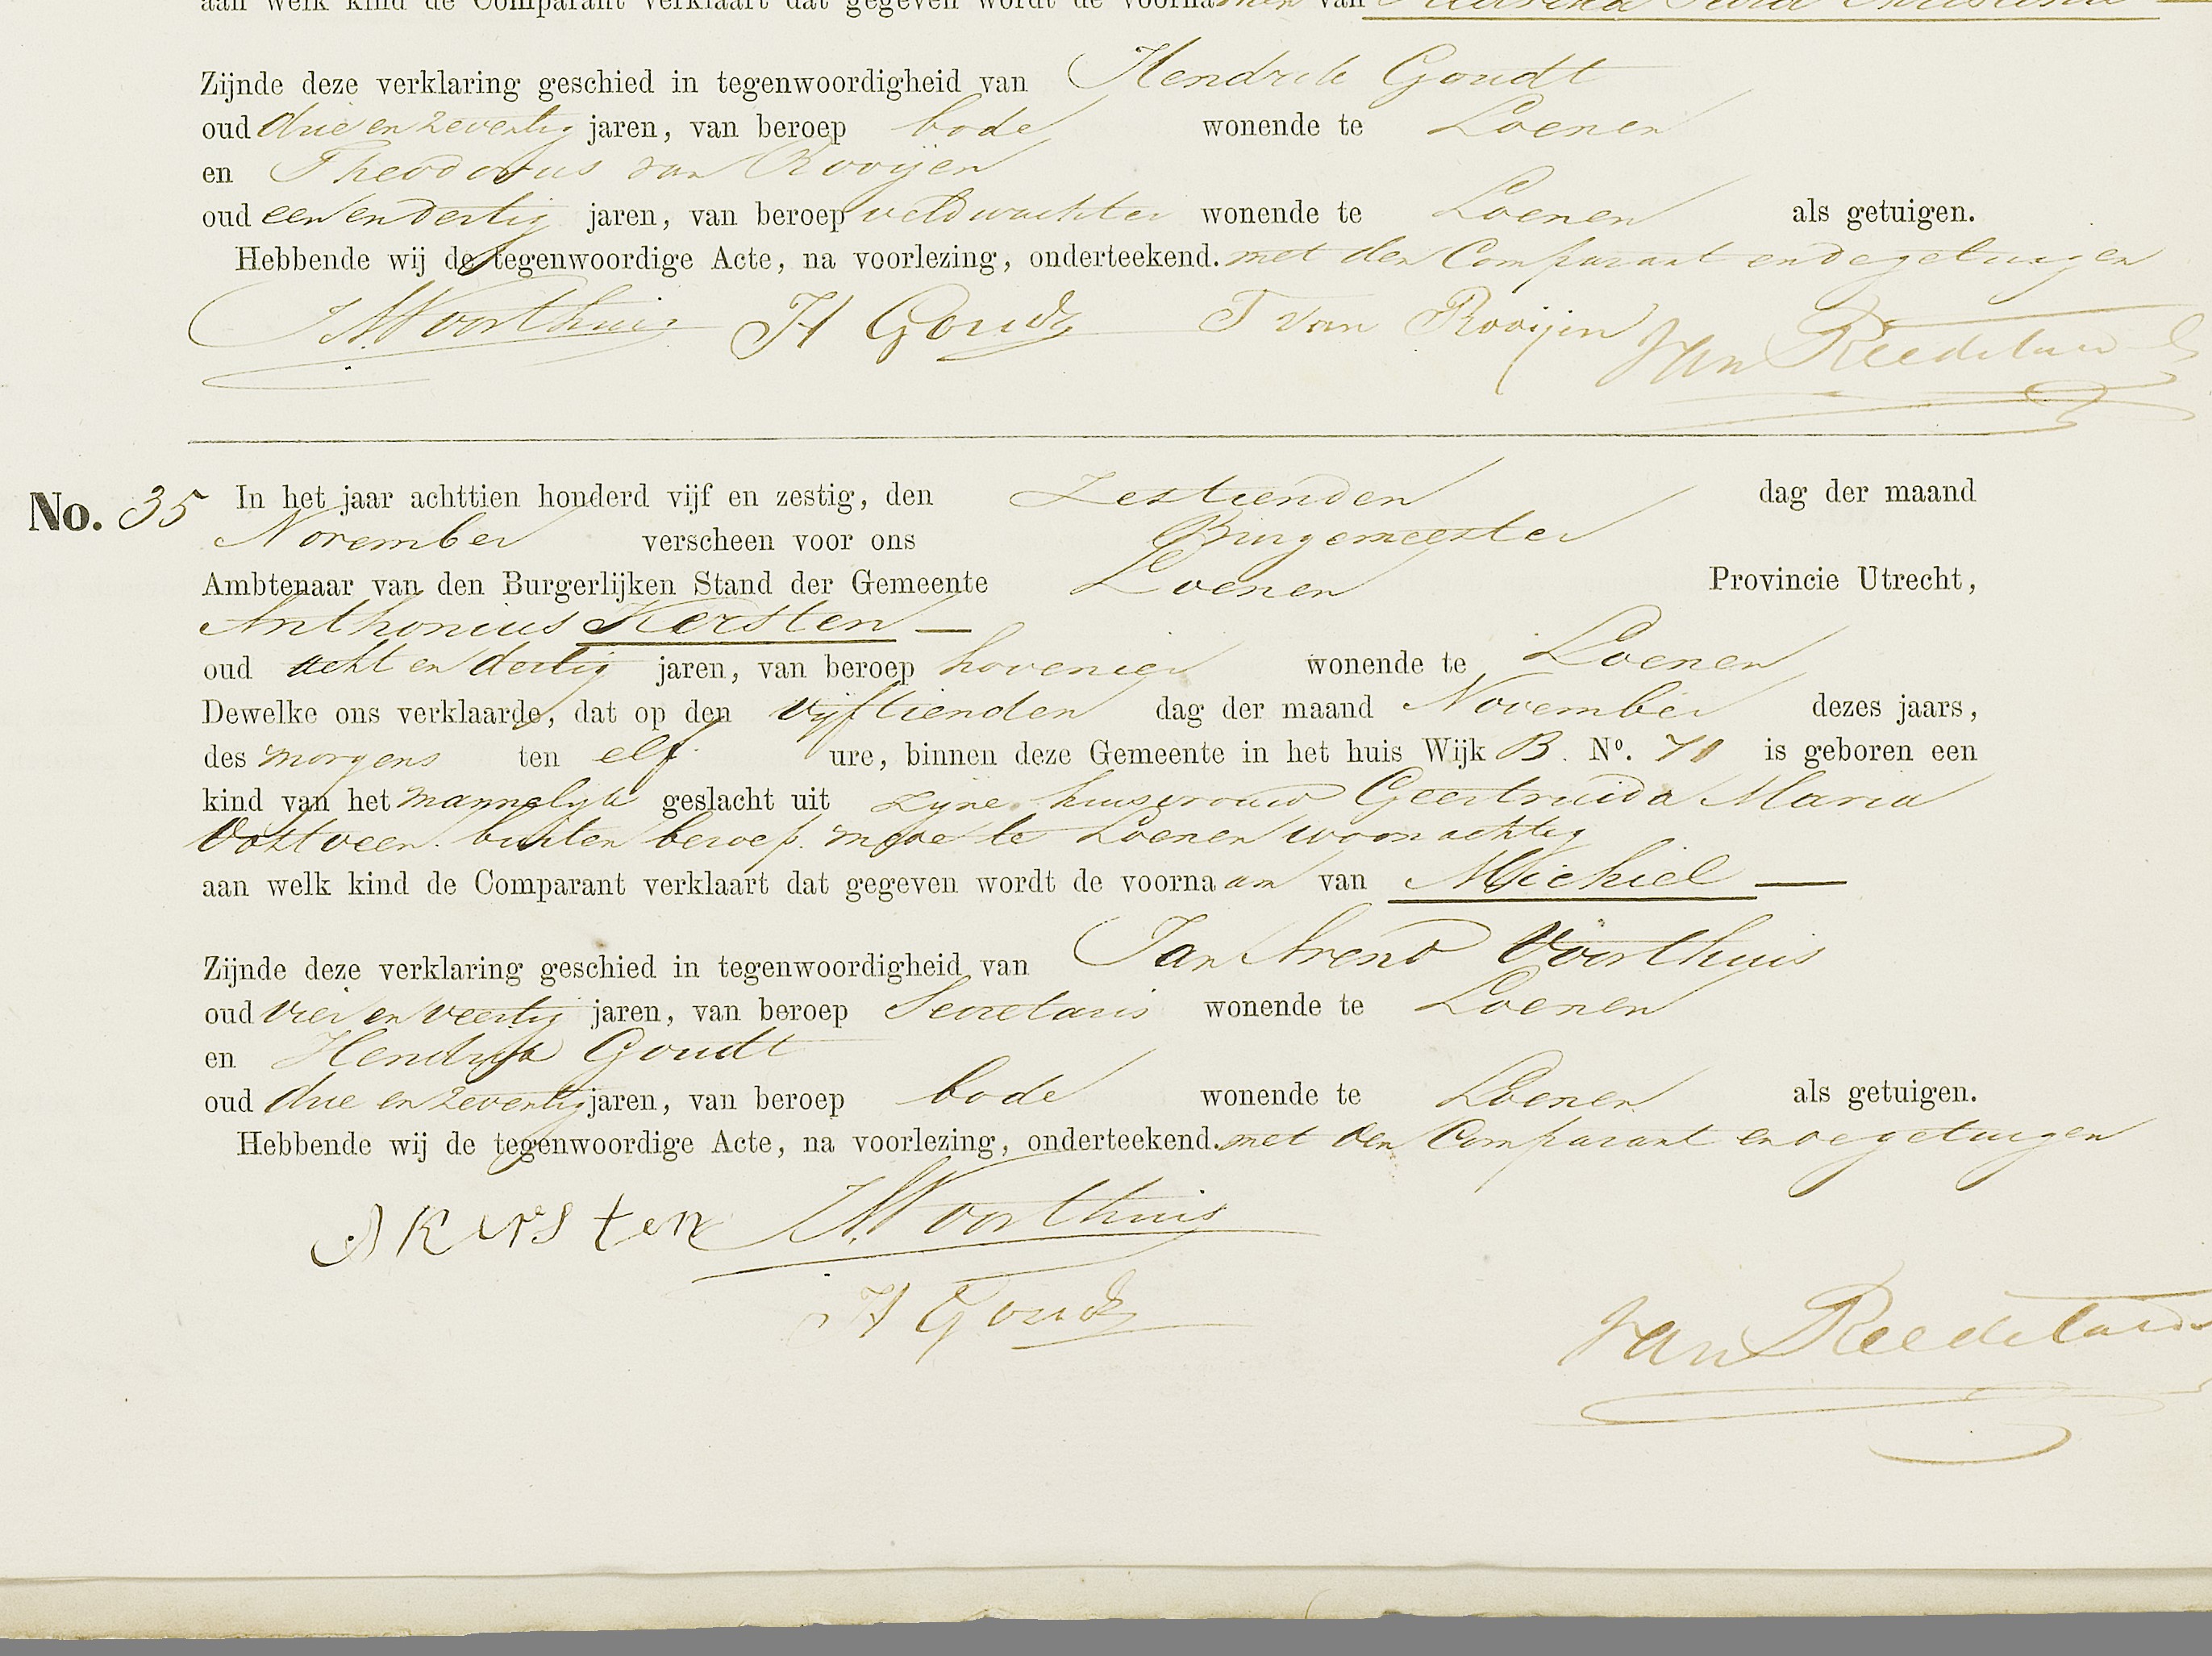 aan welk kind de Comparant verklaart dat gegeven wordt de voornamen van Christina
Zijnde deze verklaring geschied in tegenwoordigheid van Hendrik Goudt
oud drie en zeventig jaren, van beroep bode wonende te Loenen
en Theodorus van Rooijen
oud een en dertig jaren, van beroep veldwachter wonende te Loenen als getuigen.
Hebbende wij de tegenwoordige Acte, na voorlezing, onderteekend. met den Comparant en de getuigen
JA Voorthuis H Goudt T van Rooijen Van Reede
No. 35 In het jaar achttien honderd vijf en zestig, den Zestienden dag der maand
November verscheen voor ons Burgemeester
Ambtenaar van den Burgerlijken Stand der Gemeente Loenen Provincie Utrecht,
Anthonius Kersten
oud acht en dertig jaren, van beroep hovenier wonende te Loenen
Dewelke ons verklaarde, dat op den vijftienden dag der maand November dezes jaars,
des morgens ten elf ure, binnen deze Gemeente in het huis Wijk B. No. 71 is geboren een
kind van het mannelijk geslacht uit zijne huisvrouw Geertruida Maria
Oostveen. buiten beroep. mede te Loenen woonachtig
aan welk kind de Comparant verklaart dat gegeven wordt de voornaam van Michiel
Zijnde deze verklaring geschied in tegenwoordigheid van Jan Arend Voorthuis
oud vier en veertig jaren, van beroep Secretaris wonende te Loenen
en Hendrik Goudt
oud drie en zeventig jaren, van beroep bode wonende te Loenen als getuigen.
Hebbende wij de tegenwoordige Acte, na voorlezing, onderteekend. met den Comparant en de getuigen
A Kersten JA Voorthuis
H Goudt
Van Reede